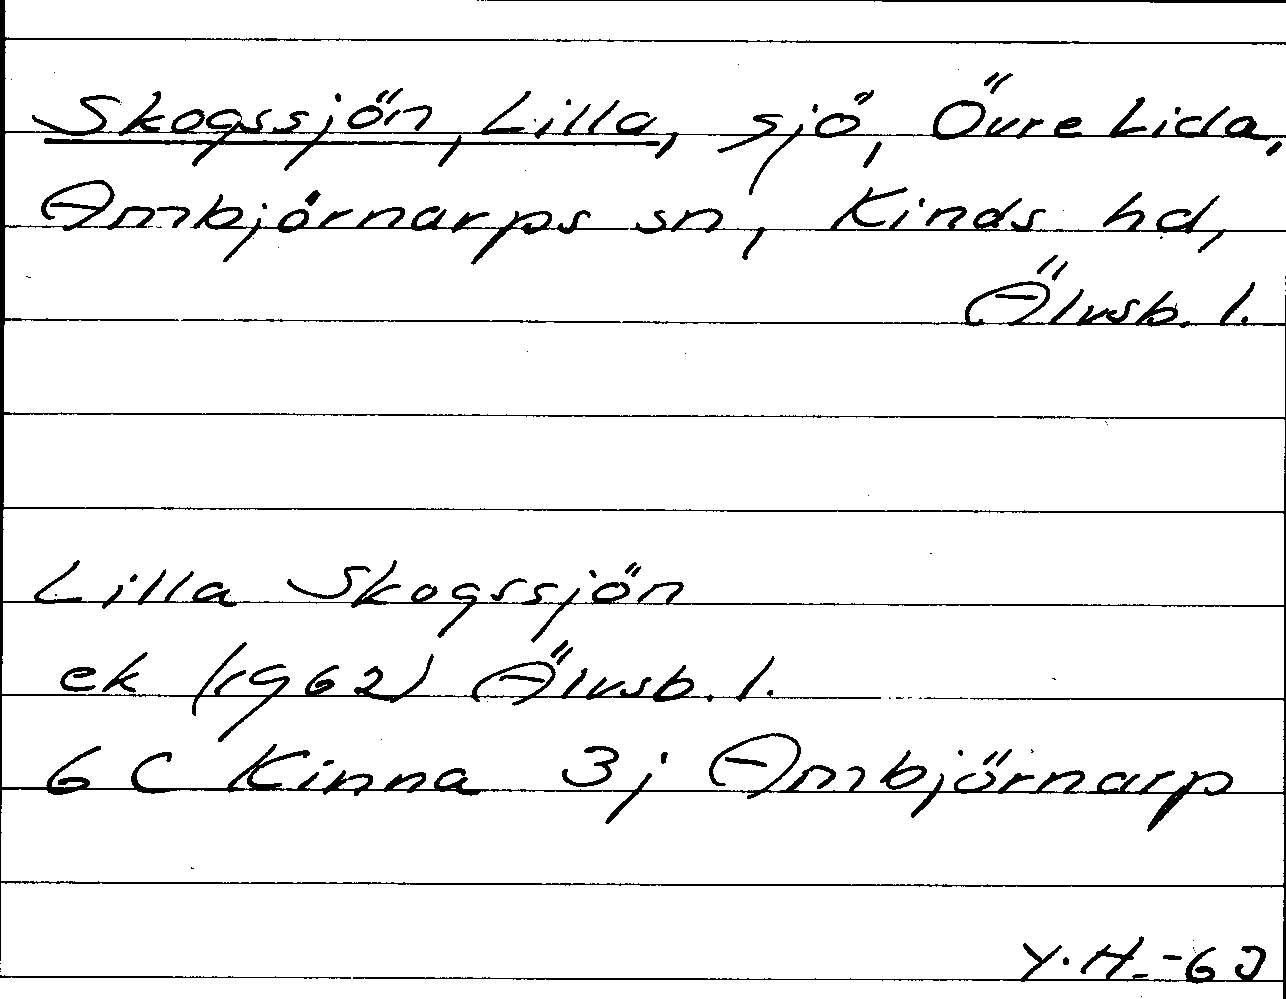 Skogssjön, Lilla, sjö, Övre Lida,
Ambjörnarps sn, Kinds hd,
Älvsb. l.
Lilla Skogssjön
ek (1962) Älvsb. l.
6 C Kinna 3j Ambjörnarp
Y.H.-63